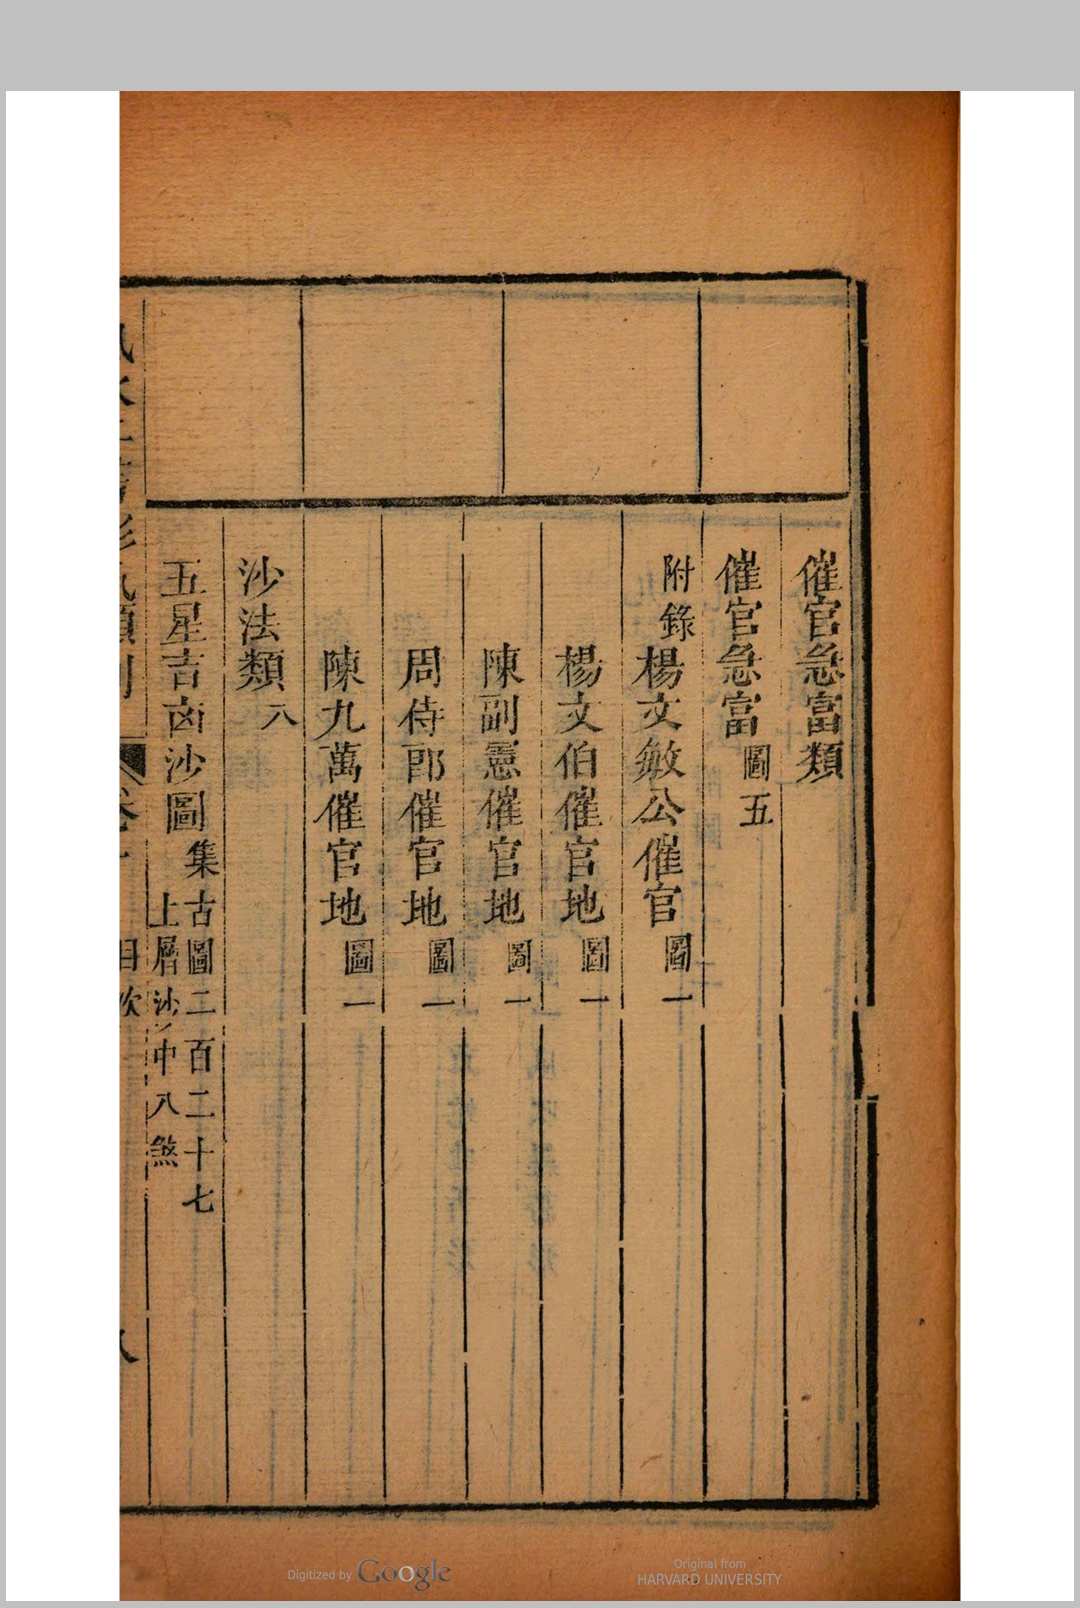 催官急富類
催官急富圖五
附錄楊文敏公催官圖一
楊文伯催官地圖一
陳副憲催官地圖一
周侍郎催官地圖一
陳九萬催官地圖一
沙法類八
五星吉凶沙圖集古圖二百二十七
上層沙中八煞
Digitized by Google
Original from
HARVARD UNIVERSITY